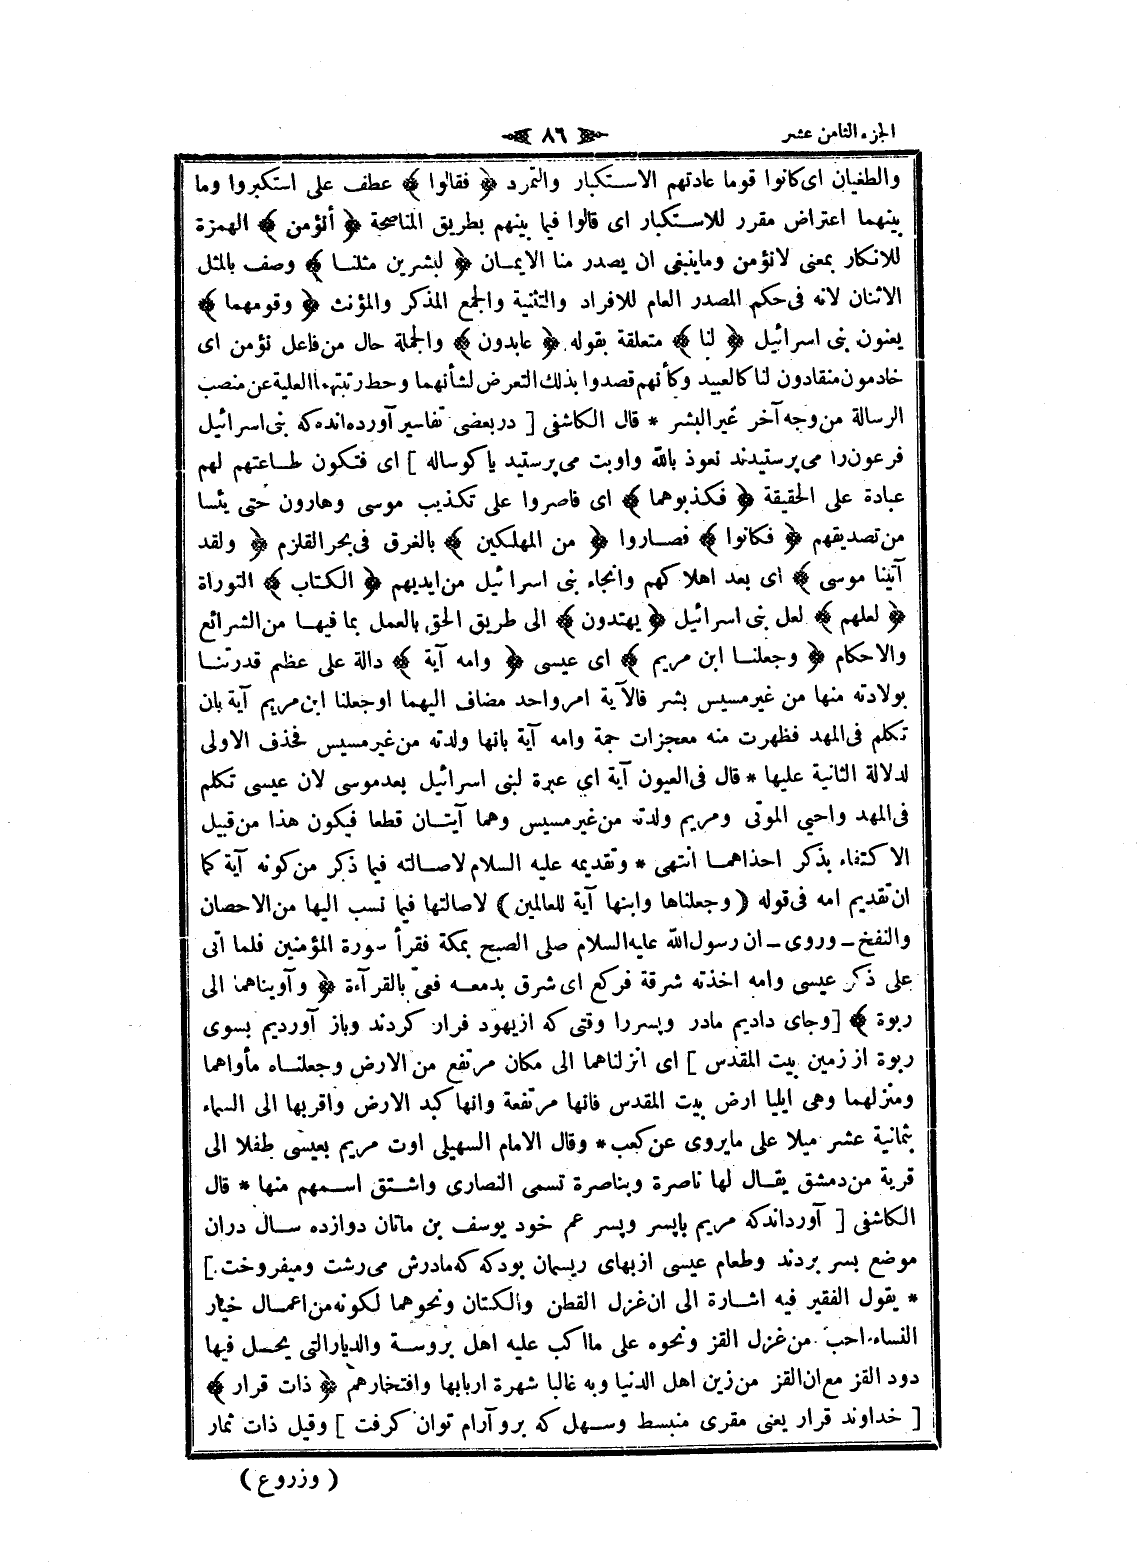 الجزء الثامن عشر
٨٦
والطغيان اى كانوا قوما عادتهم الاستكبار والتمرد ﴿ فقالوا ﴾ عطف على استكبروا وما
بينهما اعتراض مقرر للاستكبار اى قالوا فيما بينهم بطريق المناصحة ﴿ أنؤمن ﴾ الهمزة
للانكار بمعنى لانؤمن وماينبغى ان يصدر منا الايمان ﴿ لبشرين مثلنا ﴾ وصف بالمثل
الاثنان لانه فى حكم المصدر العام للافراد والتثنية والجمع المذكر والمؤنث ﴿ وقومهما ﴾
يعنون بنى اسرائيل ﴿ لنا ﴾ متعلقة بقوله ﴿ عابدون ﴾ والجملة حال من فاعل نؤمن اى
خادمون منقادون لنا كالعبيد وكأنهم قصدوا بذلك التعرض لشأنهما وحط رتبتهما العلية عن منصب
الرسالة من وجه آخر غير البشر * قال الكاشفى [ در بعضى تفاسير آورده اند كه بنى اسرائيل
فرعون را مى پرستيدند نعوذ بالله واوبت مى پرستيد يا كوساله ] اى فتكون طاعتهم لهم
عبادة على الحقيقة ﴿ فكذبوهما ﴾ اى فاصروا على تكذيب موسى وهارون حتى يئسا
من تصديقهم ﴿ فكانوا ﴾ فصاروا ﴿ من المهلكين ﴾ بالغرق فى بحر القلزم ﴿ ولقد
آتينا موسى ﴾ اى بعد اهلاكهم وانجاء بنى اسرائيل من ايديهم ﴿ الكتاب ﴾ التوراة
﴿ لعلهم ﴾ لعل بنى اسرائيل ﴿ يهتدون ﴾ الى طريق الحق بالعمل بما فيها من الشرائع
والاحكام ﴿ وجعلنا ابن مريم ﴾ اى عيسى ﴿ وامه آية ﴾ دالة على عظم قدرتنا
بولادته منها من غير مسيس بشر فالآية امر واحد مضاف اليهما اوجعلنا ابن مريم آية بان
تكلم فى المهد فظهرت منه معجزات جمة وامه آية بانها ولدته من غير مسيس فحذف الاولى
لدلالة الثانية عليها * قال فى العيون آية اي عبرة لبنى اسرائيل بعد موسى لان عيسى تكلم
فى المهد واحيي الموتى ومريم ولدته من غير مسيس وهما آيتان قطعا فيكون هذا من قبيل
الاكتفاء بذكر احداهما انتهى * وتقديمه عليه السلام لاصالته فيما ذكر من كونه آية كما
ان تقديم امه فى قوله (وجعلناها وابنها آية للعالمين) لاصالتها فيما نسب اليها من الاحصان
والنفخ ـ وروى ـ ان رسول الله عليه السلام صلى الصبح بمكة فقرأ سورة المؤمنين فلما اتى
على ذكر عيسى وامه اخذته شرقة فركع اى شرق بدمعه فعىّ بالقرآءة ﴿ وآويناهما الى
ربوة ﴾ [وجاى داديم مادر وپسررا وقتى كه ازيهود فرار كردند وباز آورديم بسوى
ربوة از زمين بيت المقدس ] اى انزلناهما الى مكان مرتفع من الارض وجعلناه مأواهما
ومنزلهما وهى ايليا ارض بيت المقدس فانها مرتفعة وانها كبد الارض واقربها الى السماء
بثمانية عشر ميلا على مايروى عن كعب * وقال الامام السهيلى اوت مريم بعيسى طفلا الى
قرية من دمشق يقال لها ناصرة وبناصرة تسمى النصارى واشتق اسمهم منها * قال
الكاشفى [ آورداندكه مريم باپسر وپسر عم خود يوسف بن ماتان دوازده سال دران
موضع بسر بردند وطعام عيسى ازبهاى ريسمان بودكه كه مادرش مى رشت وميفروخت ]
* يقول الفقير فيه اشارة الى ان غزل القطن والكتان ونحوهما لكونه من اعمال خيار
النساء احب من غزل القز ونحوه على مااكب عليه اهل بروسة والديار التى يحصل فيها
دود القز مع ان القز من زين اهل الدنيا وبه غالبا شهرة اربابها وافتخارهم ﴿ ذات قرار ﴾
[ خداوند قرار يعنى مقرى منبسط وسهل كه برو آرام توان كرفت ] وقيل ذات ثمار
( وزروع )